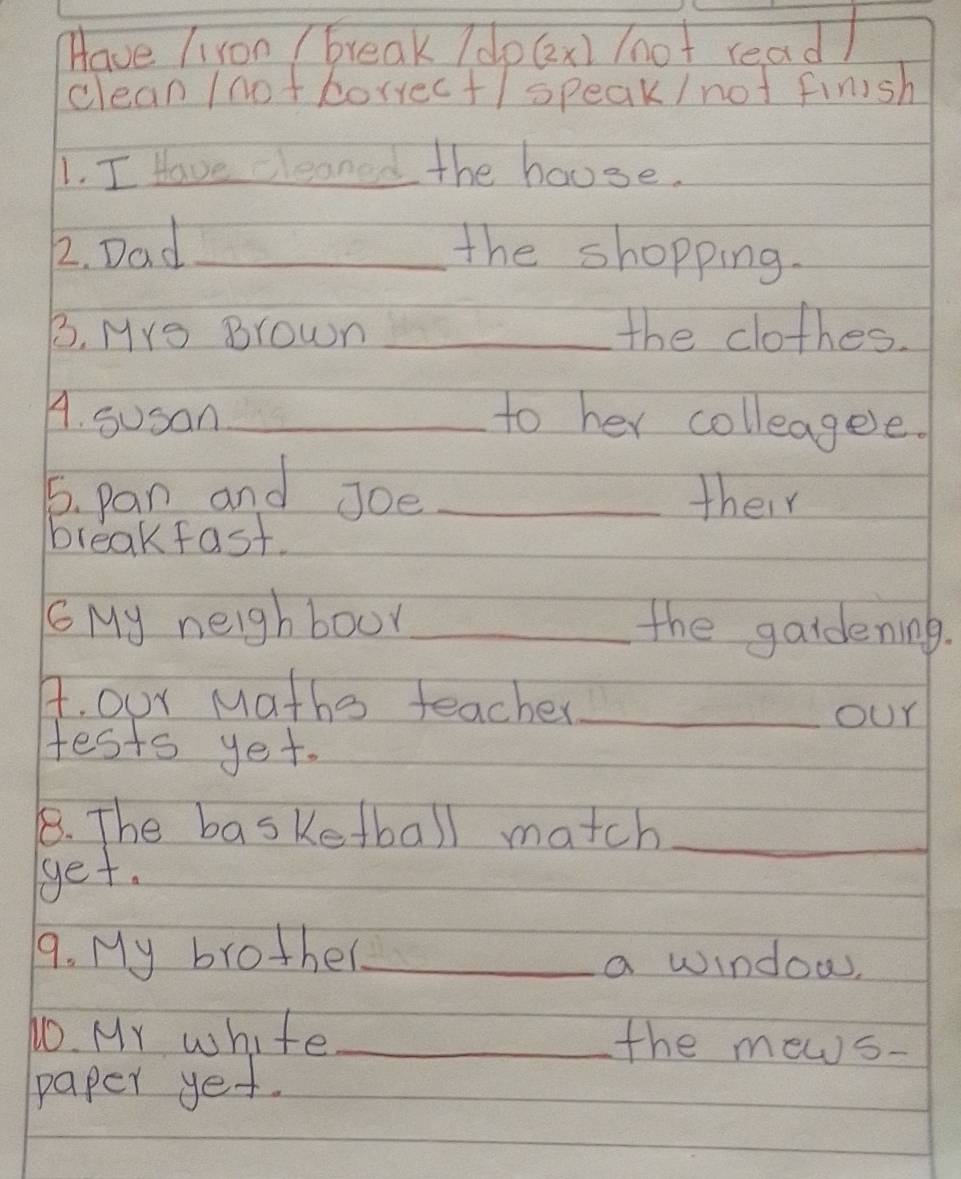 Have / iron / break / do (2x) / not read /
clean / not correct / speak / not finish
1. I Have cleaned the house.
2. Dad __________ the shopping.
3. Mrs Brown __________ the clothes.
4. Susan __________ to her colleagee.
5. pan and Joe __________ their
breakfast.
6 My neighbour __________ the gardening.
7. our Maths teacher __________ our
tests yet.
8. The basketball match __________
yet.
9. My brother __________ a window.
10. Mr white __________ the mews-
paper yet.